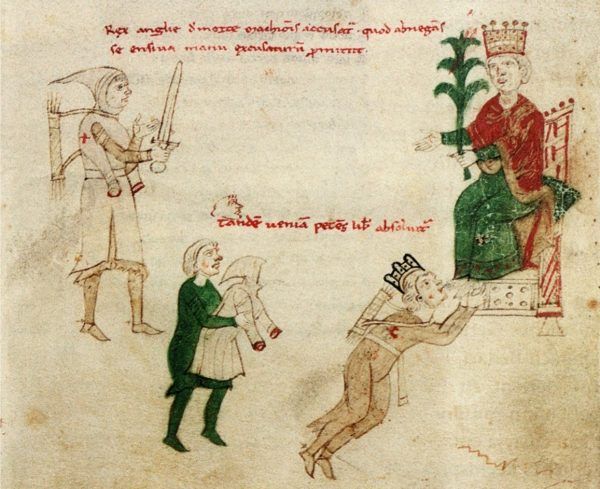 Rex anglie d̄ morte marchiōis accusat᷑ . quod abnegās
se ensiua manu excusaturū promittit .
tandē ueniā petēs lib̄ absoluit᷑